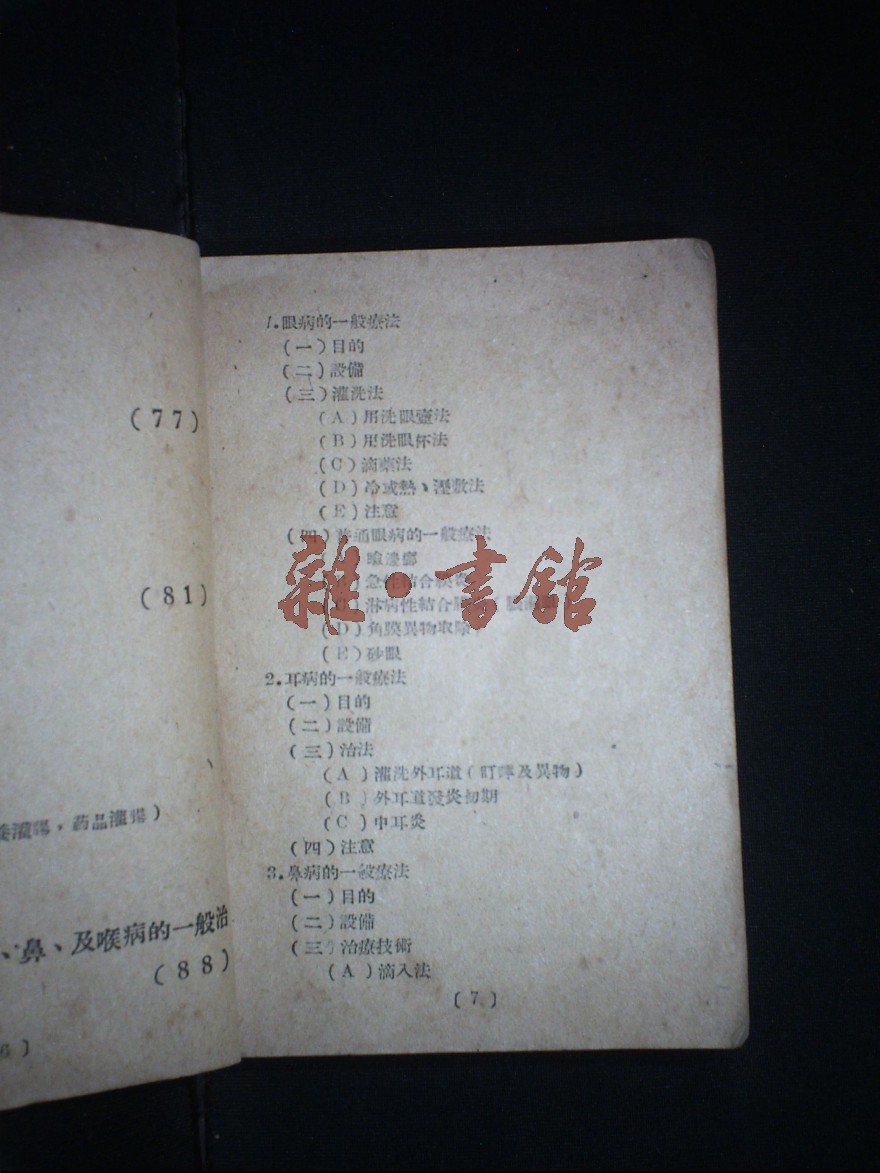 (77)
(81)
灌腸，药品灌腸）
、鼻、及喉病的一般治
(88)
6）
1.眼病的一般療法
(一)目的
(二)設備
(三)灌洗法
(A)用洗眼壺法
(B)用洗眼杯法
(C)滴藥法
(D)冷或熱、溼敷法
(E)注意
(四)普通眼病的一般療法
急性結合膜
淋病性結合
(D)角膜異物取除
(E)砂眼
2.耳病的一般療法
(一)目的
(二)設備
(三)治法
(A)灌洗外耳道(耵聹及異物)
(B)外耳道發炎初期
(C)中耳炎
(四)注意
3.鼻病的一般療法
(一)目的
(二)設備
(三)治療技術
(A)滴入法
(7)
雜·書館